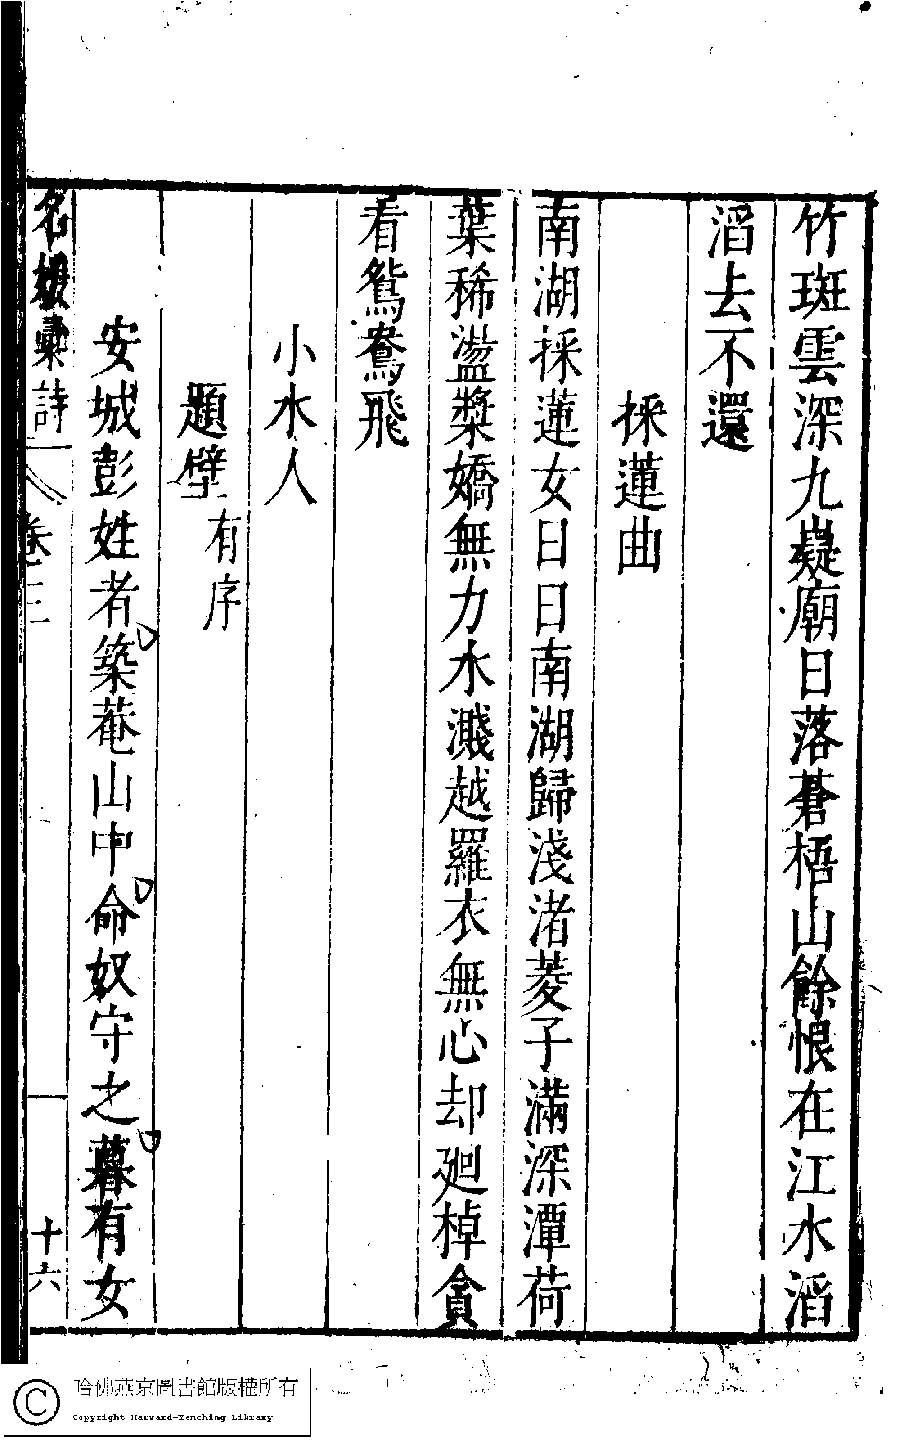 竹斑雲深九嶷廟日落蒼梧山餘恨在江水滔
滔去不還
採蓮曲
南湖採蓮女日日南湖歸淺渚菱子滿深潭荷
葉稀盪槳嬌無力水濺越羅衣無心却廻棹貪
看鴛鴦飛
小水人
題壁有序
安城彭姓者築菴山中命奴守之暮有女
名媛彙詩 卷三 十六
哈佛燕京圖書館版權所有
Copyright Harvard-Yenching Library